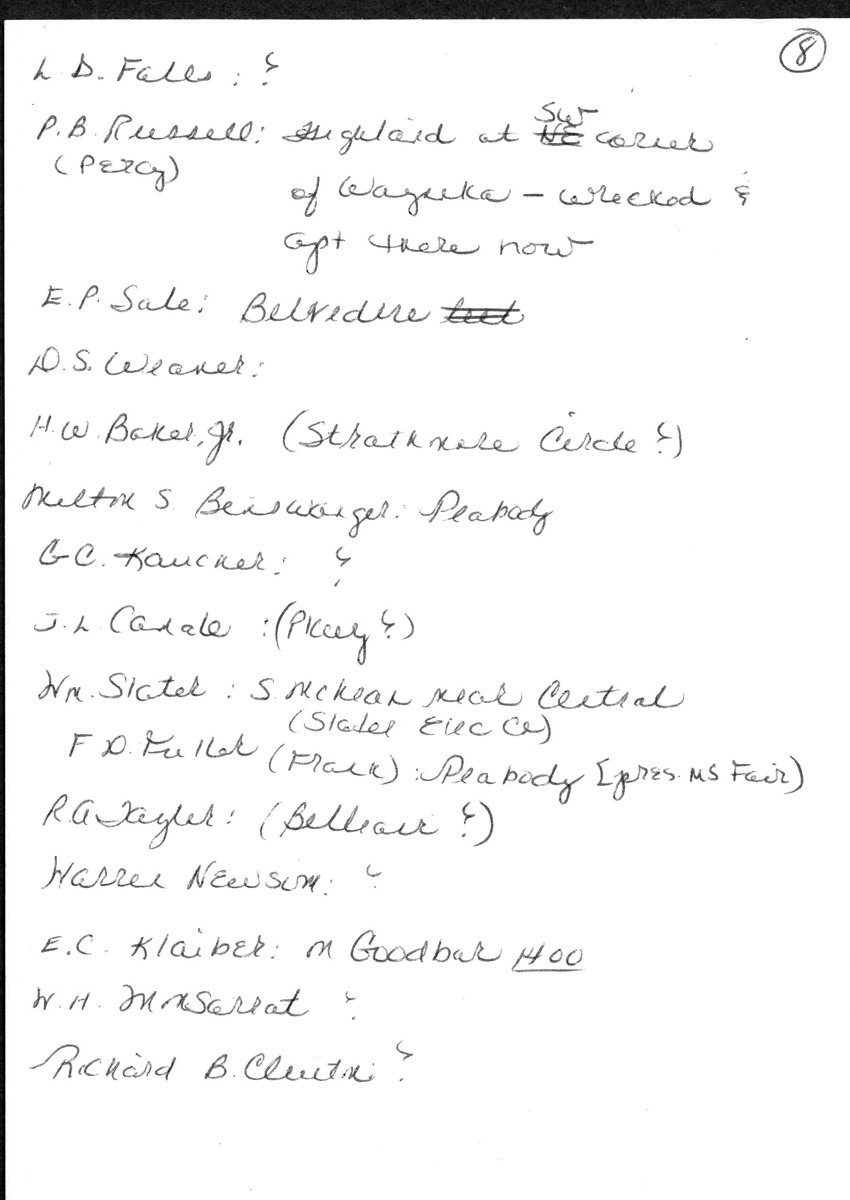 8
L. D. Falls: ?
P.B. Russell: Highland at NE SW corner
(PERCY)
of Waynoka – wrecked &
apt there now
E.P. Sale: Belvedere
D.S. Weaver:
H.W. Baker, Jr. (Strathmore Circle ?)
Milton S. Binswanger: Peabody
G.C. Kaucher: ?
J.L. Canale : (Pkwy ?)
Wm. Slater : S. McLean near Central
(Slater Elec Co)
F D. Fuller (Frank) : Peabody [pres. MS Fair)
R.A. Taylor: (Belleair ?)
Warren Newsom: ?
E.C. Klaiber: on Goodbar 1400
W. H. Monsarrat ?
Richard B. Clinton ?